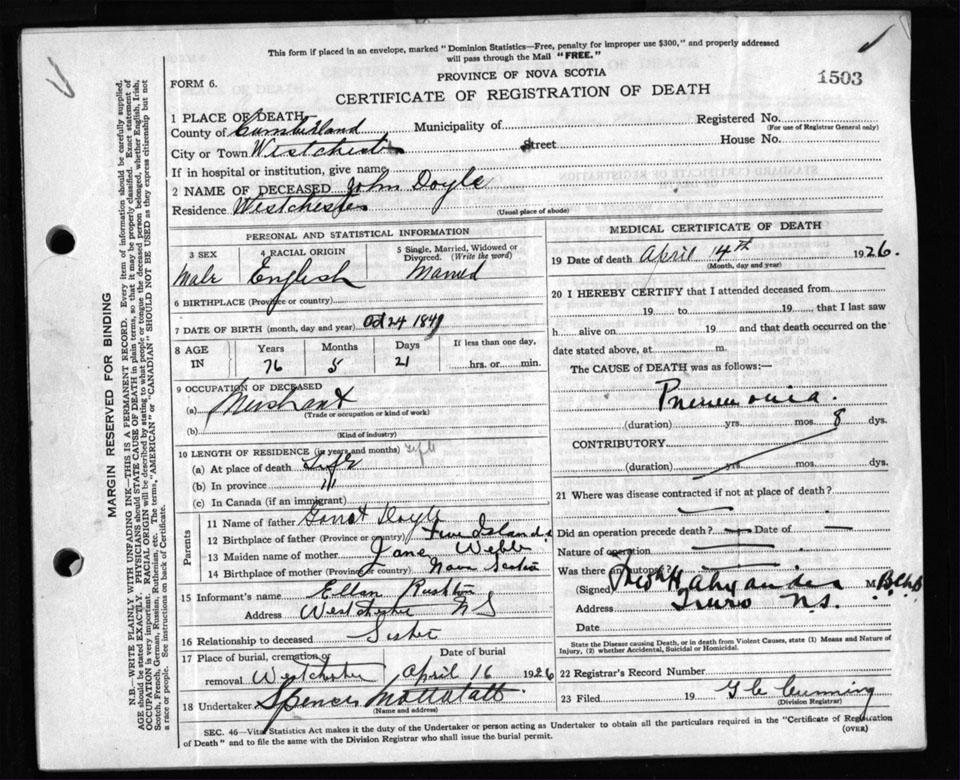 This form if placed in an envelope, marked "Dominion Statistics—Free, penalty for improper use $300," and properly addressed
will pass through the Mail "FREE."
FORM 6.
PROVINCE OF NOVA SCOTIA
1503
CERTIFICATE OF REGISTRATION OF DEATH
1 PLACE OF DEATH
County of Cumberland Municipality of
Registered No.
(For use of Registrar General only)
City or Town Westchester Street House No.
If in hospital or institution, give name
2 NAME OF DECEASED John Doyle
Residence Westchester
(Usual place of abode)
PERSONAL AND STATISTICAL INFORMATION
3 SEX 4 RACIAL ORIGIN 5 Single, Married, Widowed or
Divorced. (Write the word)
Male English Married
6 BIRTHPLACE (Province or country)
7 DATE OF BIRTH (month, day and year) Oct 24 1849
8 AGE Years Months Days If less than one day,
IN 76 5 21 hrs. or min.
9 OCCUPATION OF DECEASED
(a) Merchant
(Trade or occupation or kind of work)
(b)
(Kind of industry)
10 LENGTH OF RESIDENCE (in years and months) Life
(a) At place of death Life
(b) In province "
(c) In Canada (if an immigrant)
Parents
11 Name of father Doyle
12 Birthplace of father (Province or country) Five Islands
13 Maiden name of mother Jane Webb
14 Birthplace of mother (Province or country) Nova Scotia
15 Informant's name Ellen Rushton
Address Westchester N S
16 Relationship to deceased Sister
17 Place of burial, cremation or Date of burial
removal Westchester April 16 1926
18 Undertaker Spencer
(Name and address)
MEDICAL CERTIFICATE OF DEATH
19 Date of death April 14th 1926.
(Month, day and year)
20 I HEREBY CERTIFY that I attended deceased from
19 to 19, that I last saw
h alive on 19 and that death occurred on the
date stated above, at m.
The CAUSE of DEATH was as follows:—
Pneumonia.
(duration) yrs. mos. 8 dys.
CONTRIBUTORY
(duration) yrs. mos. dys.
21 Where was disease contracted if not at place of death?
Did an operation precede death? Date of
Nature of operation
Was there any autopsy?
(Signed) M.
Address Truro N.S.
Date
State the Disease causing Death, or in death from Violent Causes, state (1) Means and Nature of
Injury, (2) whether Accidental, Suicidal or Homicidal.
22 Registrar's Record Number
23 Filed 19 G C Cumming
(Division Registrar)
SEC. 46—Vital Statistics Act makes it the duty of the Undertaker or person acting as Undertaker to obtain all the particulars required in the "Certificate of Registration
of Death" and to file the same with the Division Registrar who shall issue the burial permit.
(OVER)
MARGIN RESERVED FOR BINDING
N.B.—WRITE PLAINLY WITH UNFADING INK—THIS IS A PERMANENT RECORD. Every item of information should be carefully supplied.
AGE should be stated EXACTLY. PHYSICIANS should STATE CAUSE OF DEATH in plain terms, so that it may be properly classified. Exact statement of
OCCUPATION is very important. RACIAL ORIGIN will be described by stating to what people or tongue the deceased person belonged, whether English, Irish,
Scotch, French, German, Russian, Ruthenian, etc. The terms, "AMERICAN" or "CANADIAN" SHOULD NOT BE USED as they express citizenship but not
a race or people. See instructions on back of Certificate.